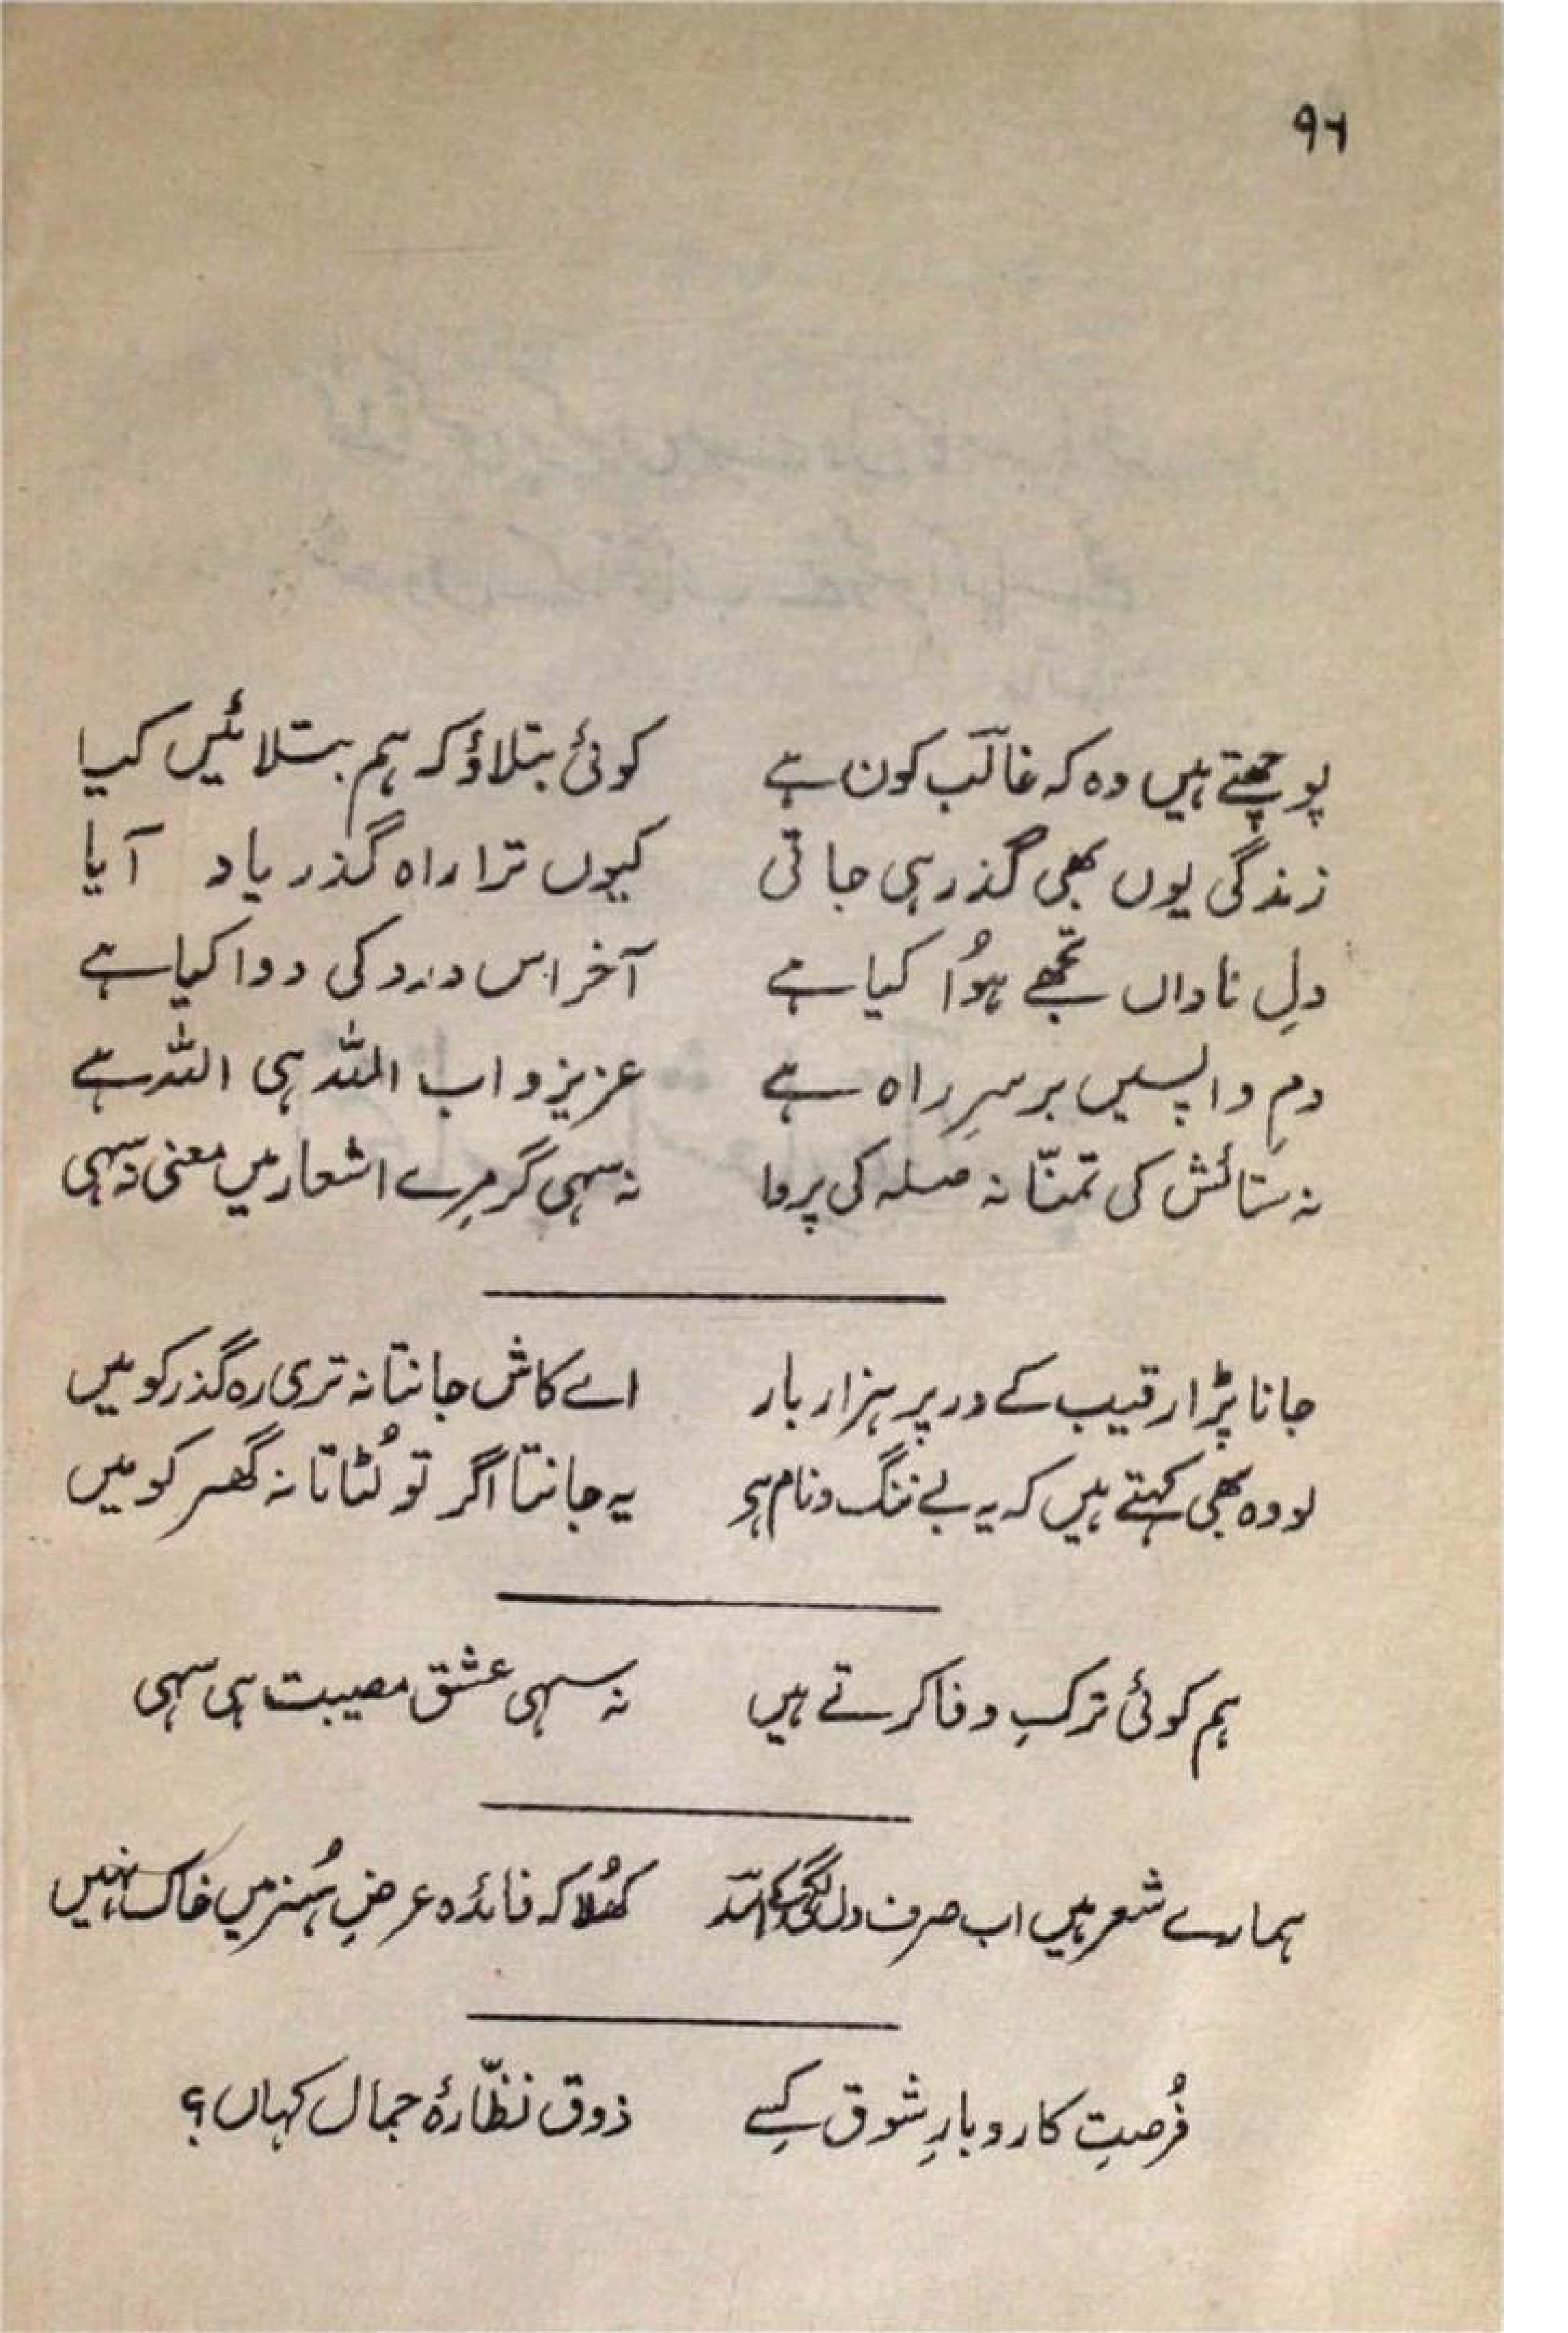 ۹۶
پوچھتے ہیں وہ کہ غالبؔ کون ہے کوئی بتلاؤ کہ ہم بتلائیں کیا
زندگی یوں بھی گذر ہی جاتی کیوں ترا راہ گذر یاد آیا
دلِ ناداں تجھے ہوُا کیا ہے آخر اس درد کی دوا کیا ہے
دمِ واپسیں برسرِ راہ ہے عزیزو اب اللہ ہی اللہ ہے
نہ ستائش کی تمنّا نہ صلہ کی پروا نہ سہی گر مرِے اشعار میں معنی نہ سہی
جانا پڑا رقیب کے در پر ہزار بار اے کاش جانتا نہ تری رہ گذر کو میں
لو وہ بھی کہتے ہیں کہ یہ بے ننگ و نام ہے یہ جانتا اگر تو لُٹاتا نہ گھر کو میں
ہم کوئی ترکِ وفا کرتے ہیں نہ سہی عشق مصیبت ہی سہی
ہمارے شعر ہیں اب صرف دل لگی کے اسدؔ کھُلا کہ فائدہ عرضِ ہُنر میں خاک نہیں
فُرصتِ کاروبارِ شوق کسِے ذوق نظّارۂ جمال کہاں؟